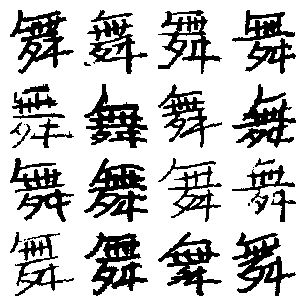 舞舞舞舞
舞舞舞舞
舞舞舞舞
舞舞舞舞